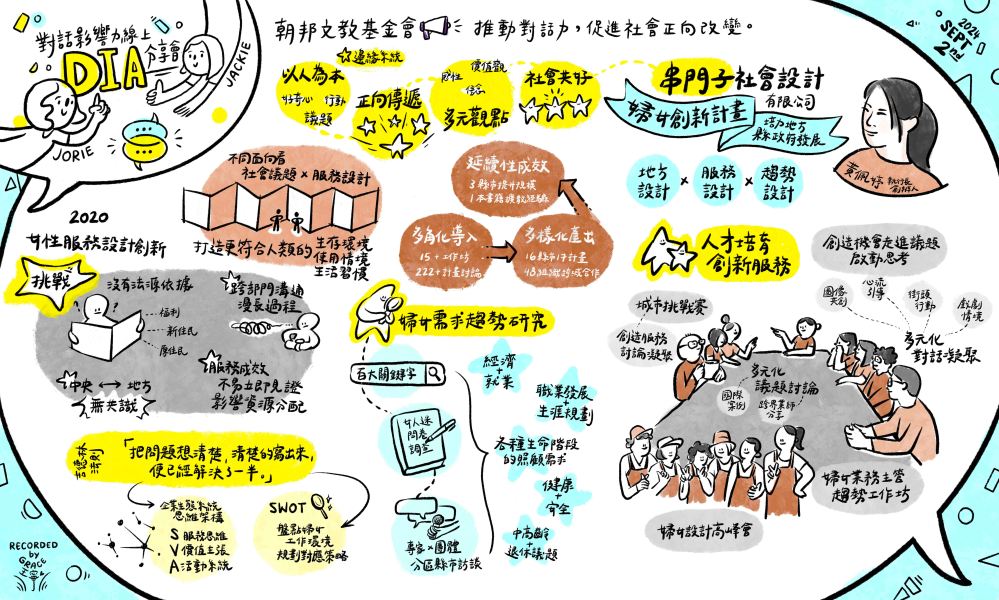 對話影響力線上
分享會
DIA
JACKIE
JORIE
朝邦文教基金會 推動對話力，促進社會正向改變。
2024
SEPT
2nd
以人為本
好奇心 行動
議題
邊緣系統
正向傳遞
價值觀
個性
信念
多元觀點
社會共好
串門子社會設計
有限公司
婦女創新計畫
培力地方
縣政府發展
黃佩婷 執行長
創辦人
地方
設計
×
服務
設計
×
趨勢
設計
不同面向看
社會議題×服務設計
打造更符合人類的
生存環境
使用情境
生活習慣
延續性成效
3縣市提升規模
1本書籍擴散經驗
多角化導入
15+工作坊
222+計畫討論
多樣化產出
16縣市17計畫
48組織跨域合作
2020
女性服務設計創新
挑戰
沒有法源依據
福利
新住民
原住民
跨部門溝通
漫長過程
中央 ↔ 地方
無共識
服務成效
不易立即見證
影響資源分配
婦女需求趨勢研究
百大關鍵字
女人迷
問卷
調查
專家×團體
分區縣市訪談
經濟
+
就業
職業發展
+
生涯規劃
各種生命階段
的照顧需求
健康
+
安全
中高齡
+
退休議題
人才培育
創新服務
創造機會走進議題
啟動思考
城市挑戰賽
創造服務
討論凝聚
圖像
共創
心流
引導
街頭
行動
戲劇
情境
多元化
對話凝聚
多元化
議題討論
國際
案例
跨界業師
分享
婦女業務主管
趨勢工作坊
婦女設計高峰會
「把問題想清楚，清楚的寫出來，
便已經解決了一半。」
企業生態系統
思維架構
S 服務思維
V 價值主張
A 活動系統
SWOT
盤點婦女
工作環境
規劃對應策略
RECORDED
by
GRACE